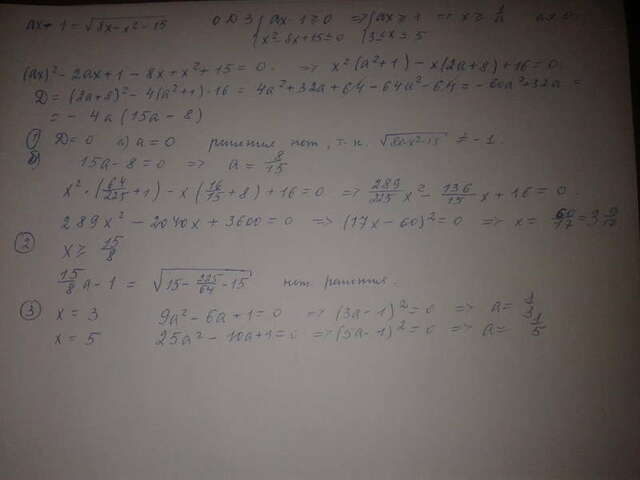 ax + 1 = √8x - x² - 15 ОДЗ { ax - 1 ≥ 0 => { ax ≥ 1 => x ≥ 1/a
{ x² - 8x + 15 ≤ 0 { 3 ≤ x ≤ 5
(ax)² - 2ax + 1 - 8x + x² + 15 = 0. => x²(a² + 1) - x(2a + 8) + 16 = 0.
D = (2a + 8)² - 4(a² + 1)·16 = 4a² + 32a + 64 - 64a² - 64 = - 60a² + 32a =
= - 4a (15a - 8)
① D = 0 а) a = 0 решения нет, т.к. √8x-x²-15 ≠ - 1.
б) 15a - 8 = 0 => a = 8/15
x² · (64/225 + 1) - x (16/15 + 8) + 16 = 0 => 289/225 x² - 136/15 x + 16 = 0.
289x² - 2040x + 3600 = 0 => (17x - 60)² = 0 => x = 60/17 = 3 9/17
② x ≥ 15/8
15/8 a - 1 = √15 - 225/64 - 15 нет решения.
③ x = 3 9a² - 6a + 1 = 0 => (3a - 1)² = 0 => a = 1/3
x = 5 25a² - 10a + 1 = 0 => (5a - 1)² = 0 => a = 1/5